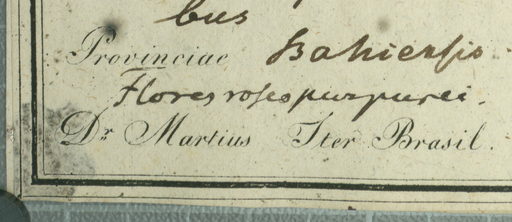 bus
Provinciae Bahiensis.
Flores roseo purpurei.
Dr. Martius Iter Brasil.